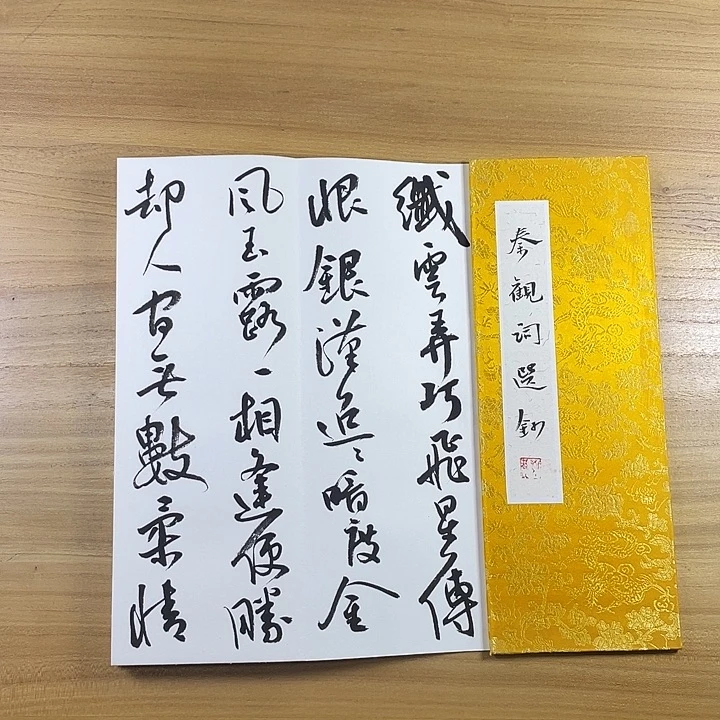 秦觀詞選鈔
纖雲弄巧飛星傳
恨銀漢迢迢暗度金
風玉露一相逢便勝
却人間無數柔情